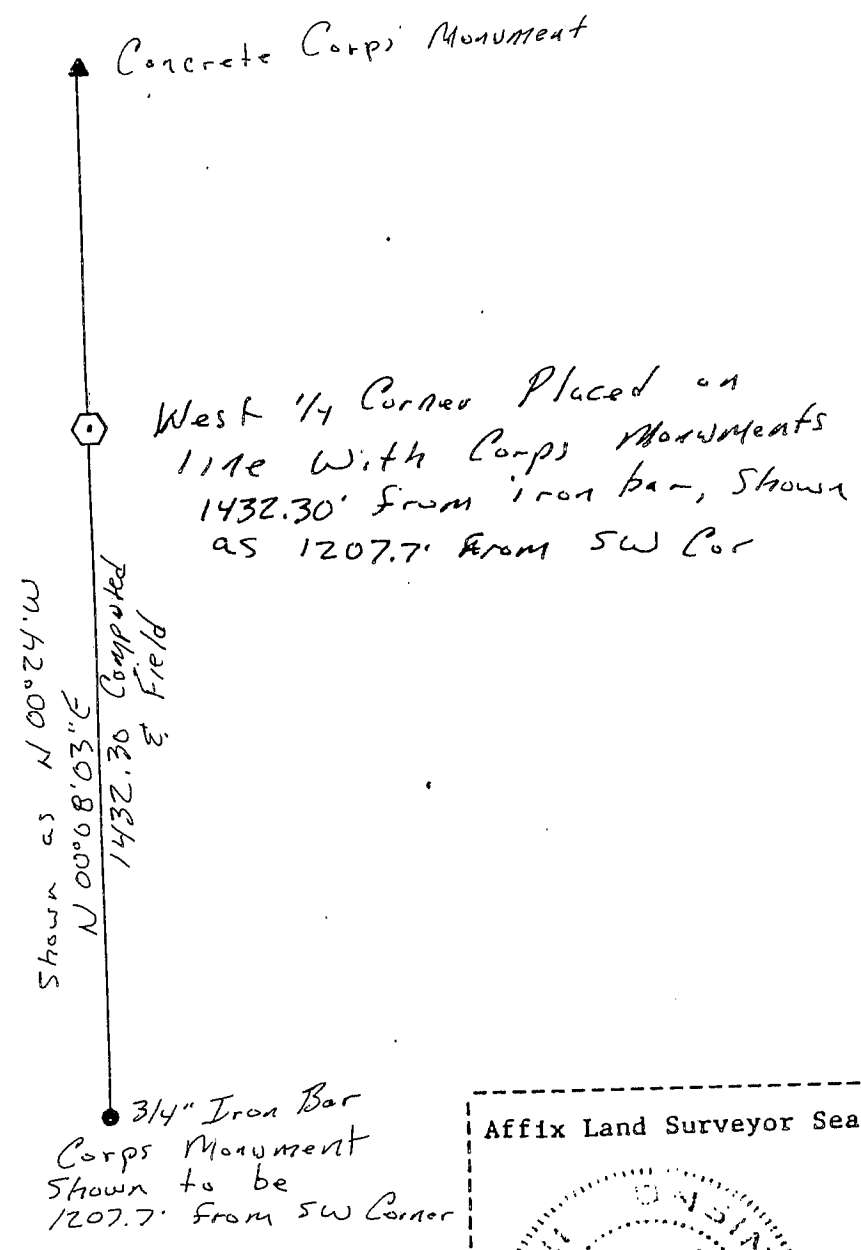 Concrete Corps Monument
West 1/4 Corner Placed on
line With Corps Monuments
1432.30' from iron bar, Shown
as 1207.7' From SW Cor
Shown as N 00°24'W
N 00°08'03"E
1432.30 Computed
& Field
3/4" Iron Bar
Corps Monument
Shown to be
1207.7' from SW Corner
Affix Land Surveyor Sea